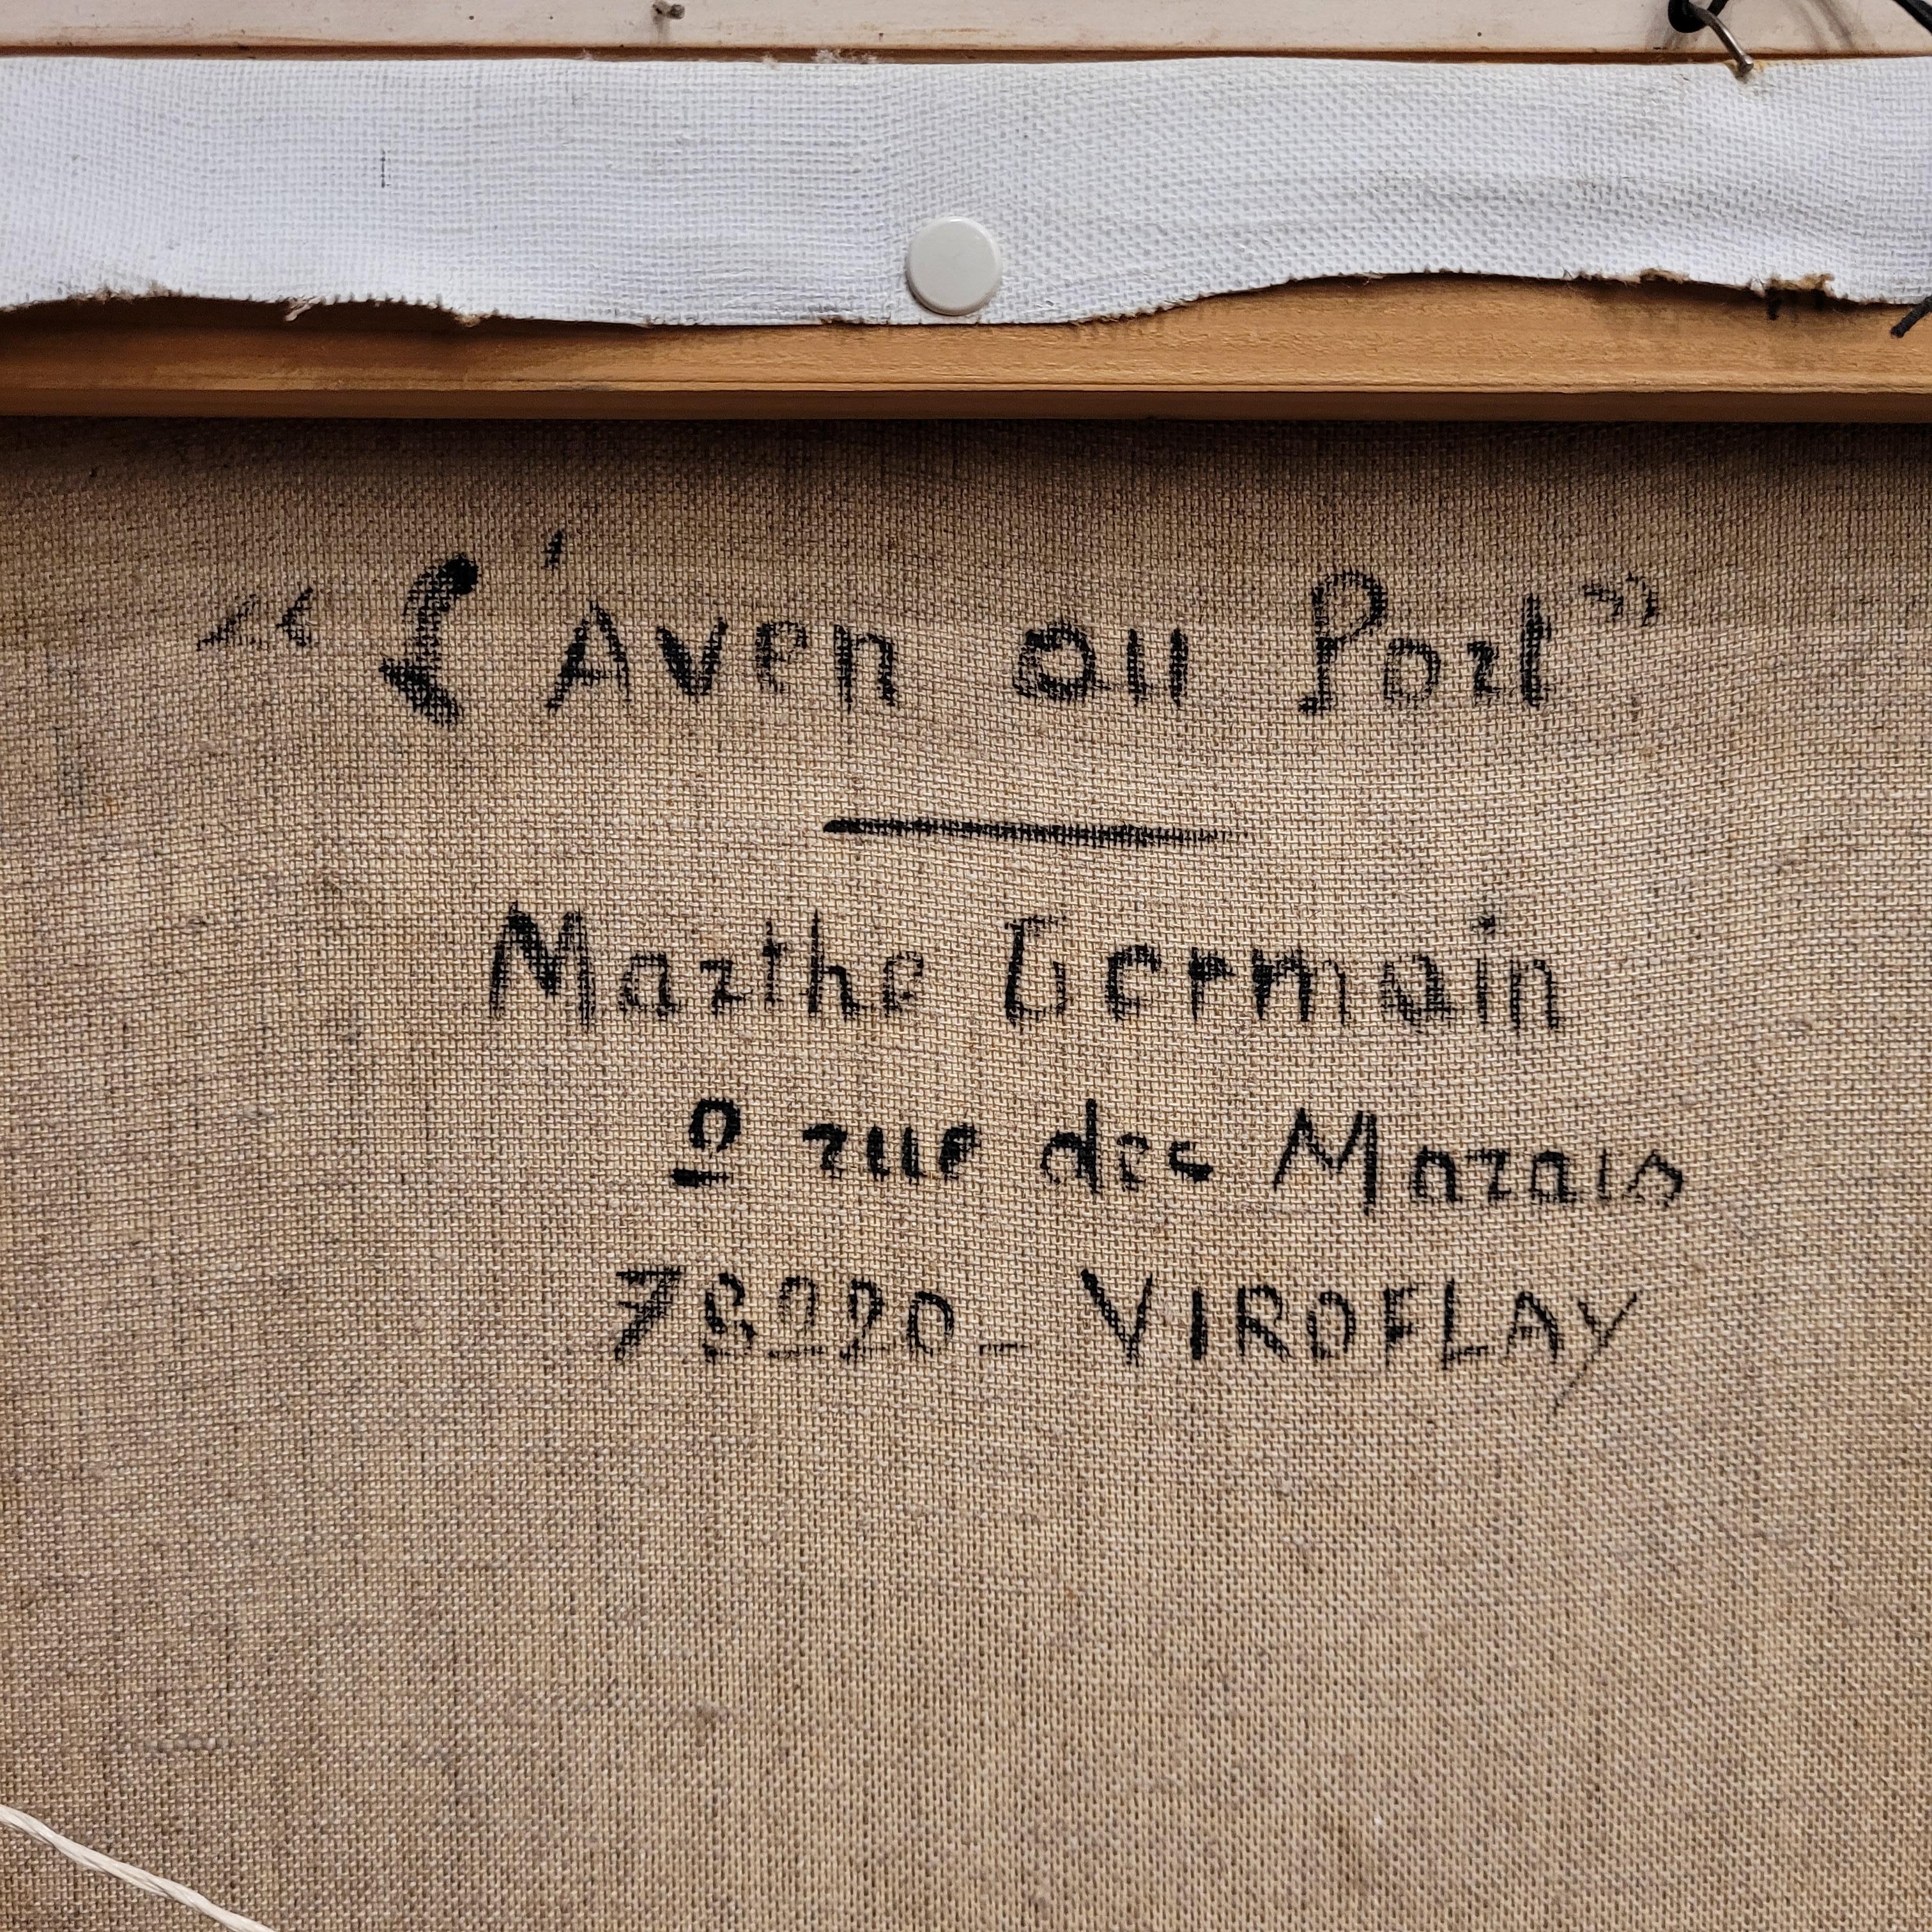 « L'Aven au Port »
Marthe Germain
2 rue des Marais
78220 - VIROFLAY